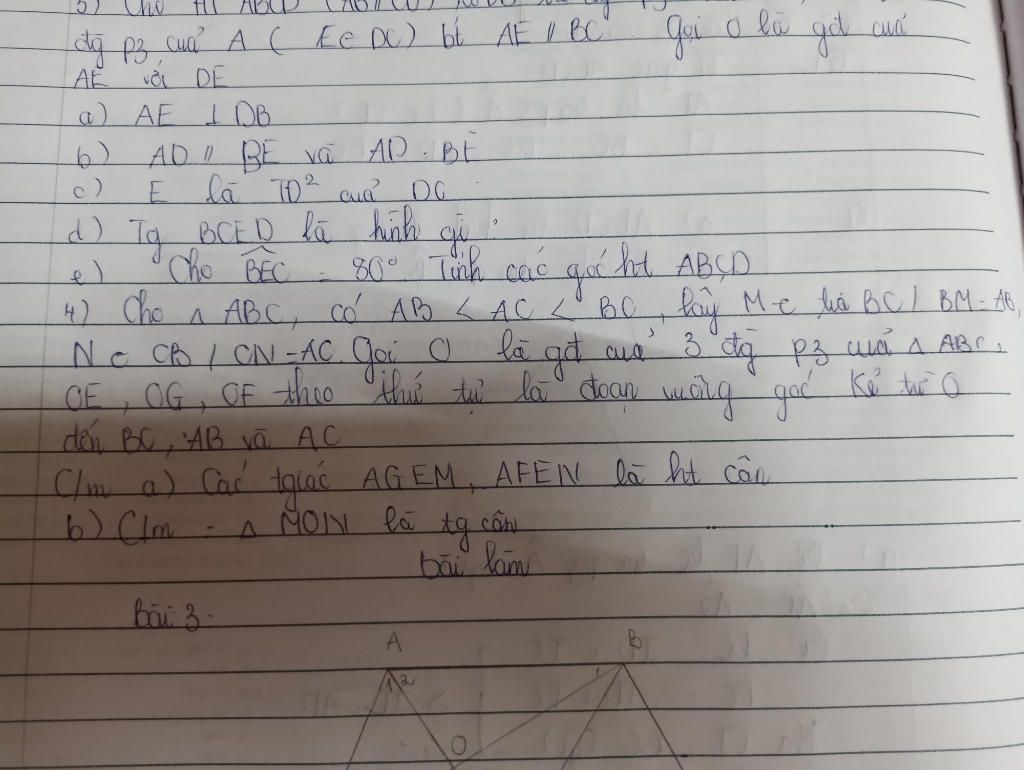 3) Cho ht ABCD (AB // CD)
đg pg cuả A ( E∈ DC) bt AE // BC Gọi O là gđ cuả
AE với DE
a) AE ⊥ DB
b) AD // BE và AD = BE
c) E là TĐ² cuả DC
d) Tg BCED là hình gì
e) Cho BEC = 80° Tính các góc ht ABCD
4) Cho Δ ABC, có AB < AC < BC, lấy M ∈ BC / BM = AB,
N ∈ CB / CN = AC. Gọi O là gđ cuả 3 đg pg cuả Δ ABC,
OE, OG, OF theo thứ tự là đoạn vuông góc kẻ từ O
đến BC, AB và AC
C/m a) Các tgiác AGEM, AFEN là ht cân
b) C/m = Δ MON là tg cân
bài làm
Bài 3.
A B
1 2 1
O